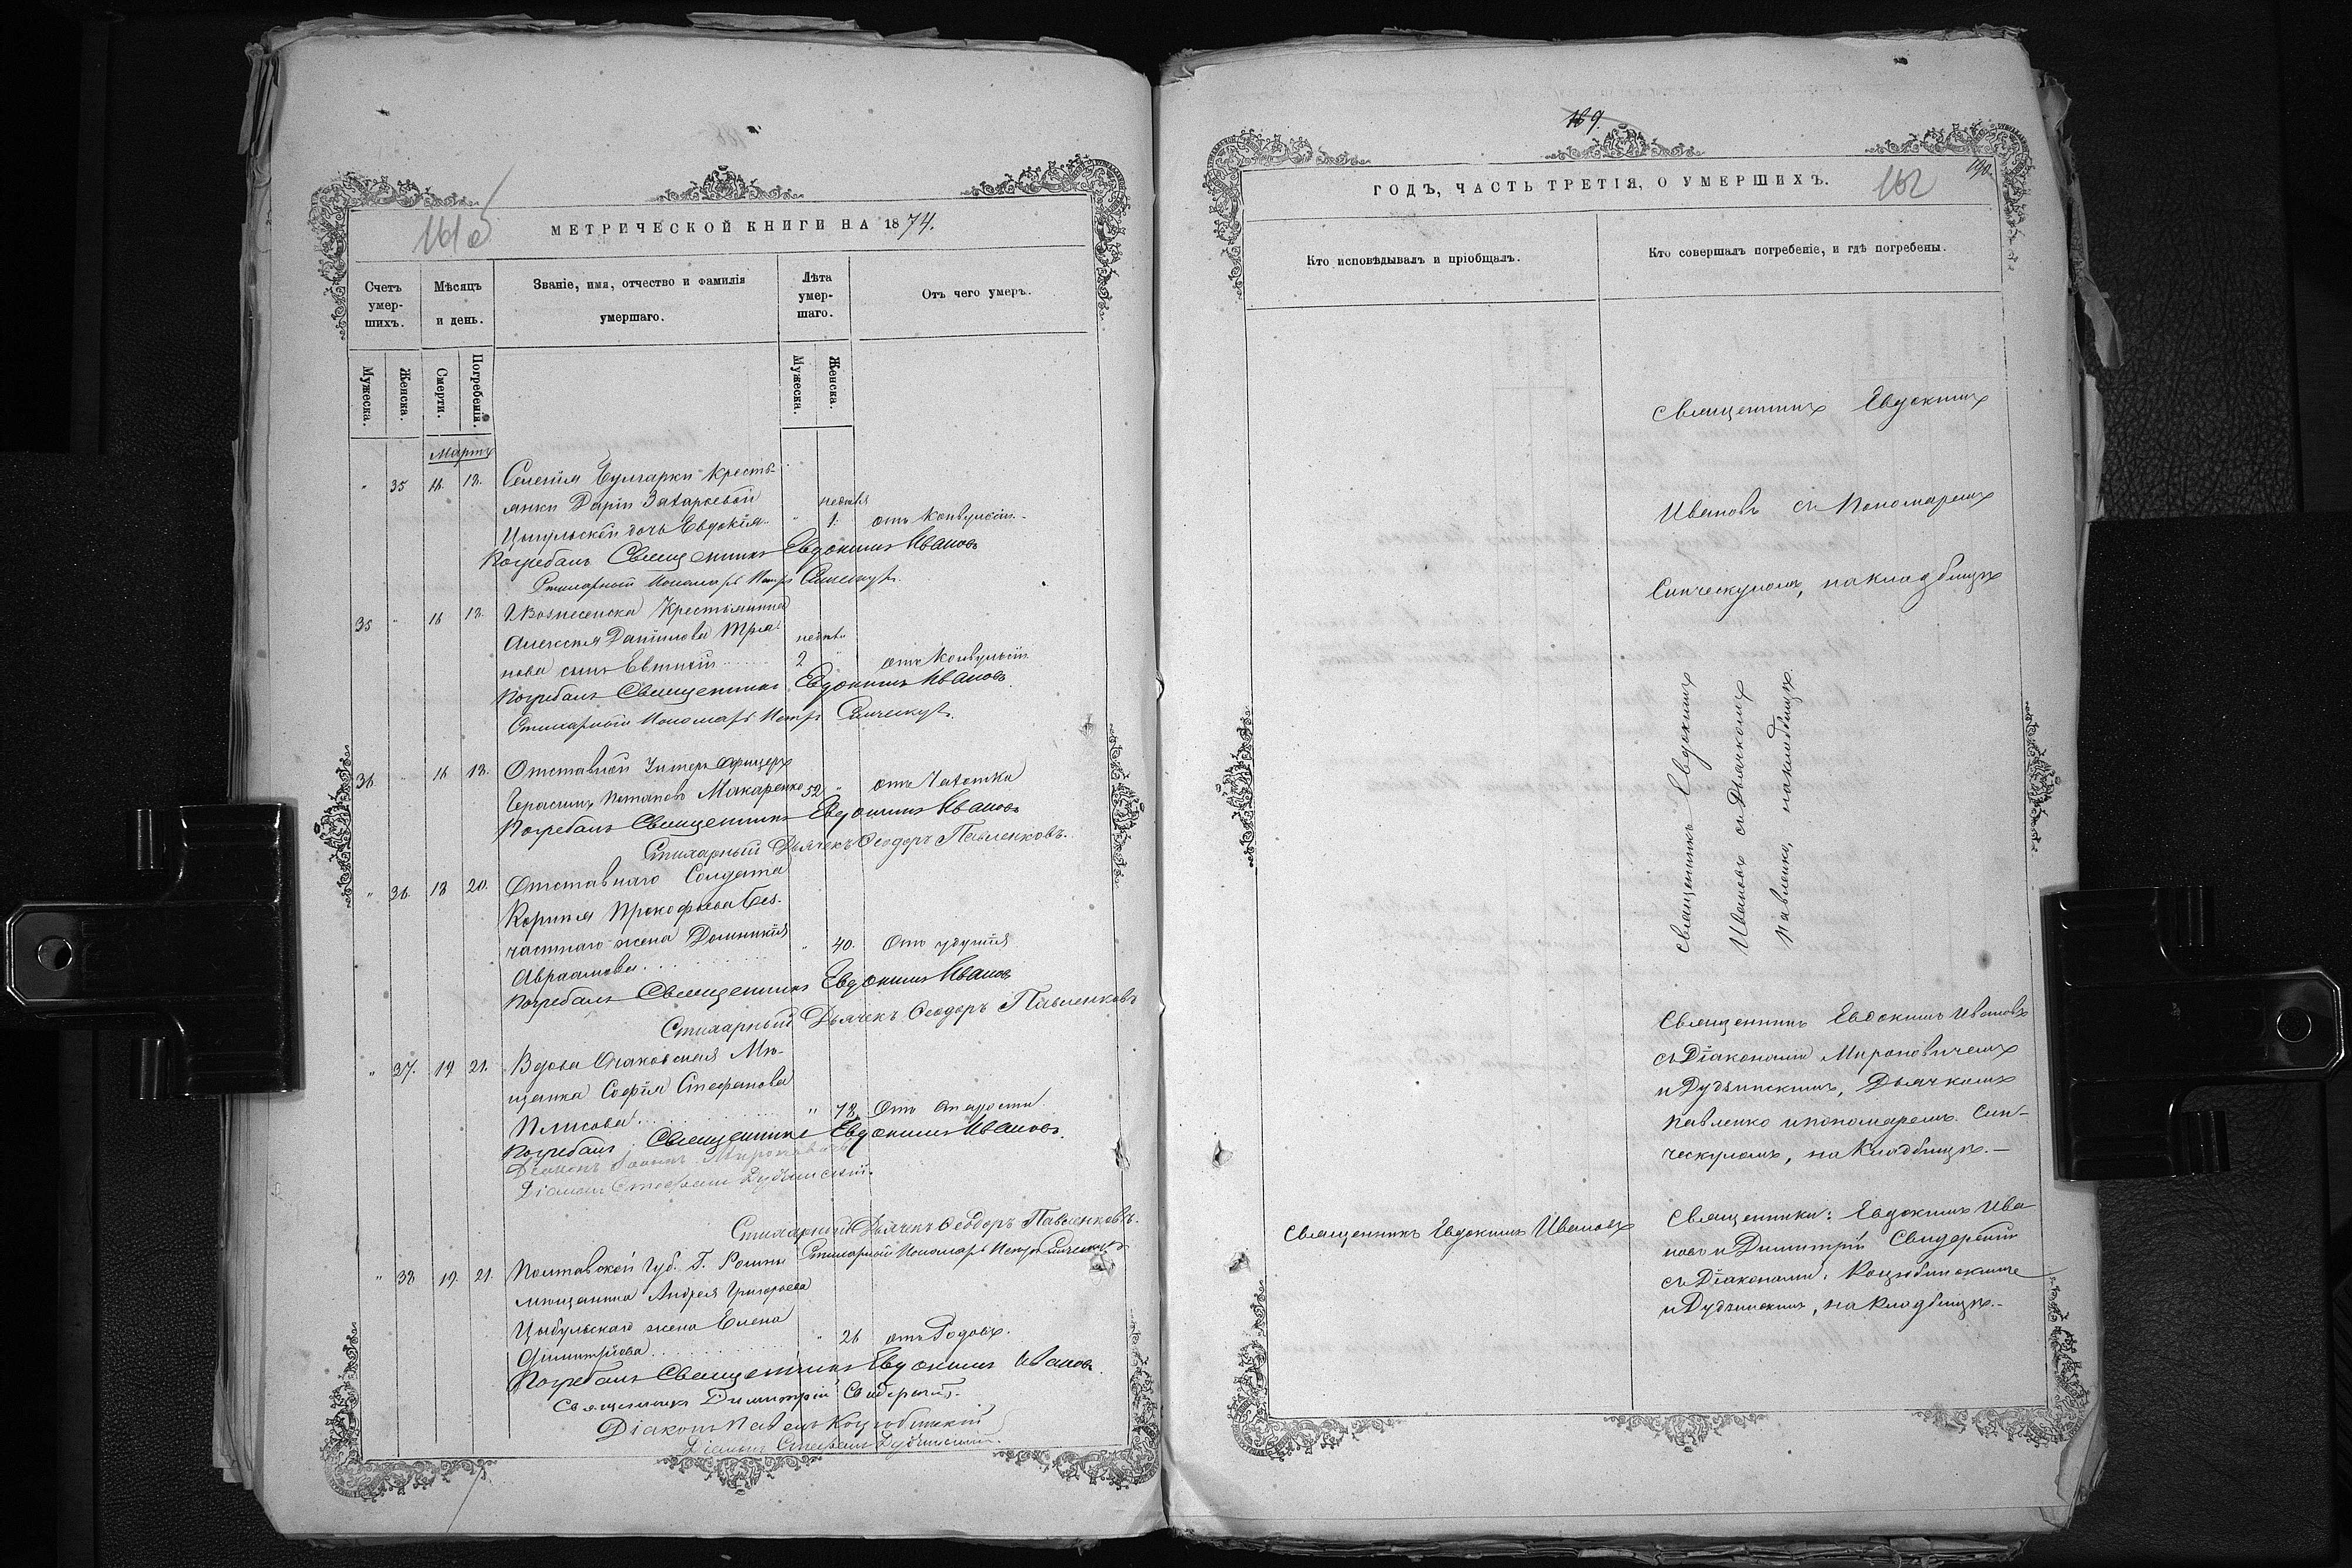 161 об
МЕТРИЧЕСКОЙ КНИГИ НА 1874.
Счетъ умер-
шихъ.
Мѣсяцъ
и день.
Званіе, имя, отчество и фамилія
умершаго.
Лѣта
умер-
шаго.
Отъ чего умеръ.
Мужеска.
Женска.
Смерти.
Погребенія.
Мужеска.
Женска.
Мартъ
" 35 16. 18. Селенія Булгарки кресть-
янки Даріи Захарьевой недѣля
Цыгульской дочь Евдокія. " 1. отъ Конвульсіи.
Погребалъ Священникъ Евдокимъ Ивановъ
Стихарный Пономарь Петръ Синческулъ.
35 " 16 18. г. Вознесенска Крестьянина
Алексѣя Данилова недѣли
сынъ Евтихій 2 " отъ Конвульсіи
Погребалъ Священникъ Евдокимъ Ивановъ
Стихарный Пономарь Петръ Синческулъ.
36 " 16 18. Отставной Унтеръ Офицеръ
Герасимъ Потаповъ Макаренко 52 " отъ Чахотки
Погребалъ Священникъ Евдокимъ Ивановъ
Стихарный Дьячекъ Ѳеодоръ Павленковъ.
" 36. 18 20. Отставнаго Солдата
Корнилія Прокофьева Без-
частнаго жена Домникія
Авраамова " 40. Отъ удушія
Погребалъ Священникъ Евдокимъ Ивановъ
Стихарный Дьячекъ Ѳеодоръ Павленковъ
" 37. 19 21. Вдова Очаковская Мѣ-
щанка Софія Стефанова
Плисова " 78 Отъ старости
Погребалъ Священникъ Евдокимъ Ивановъ.
Діаконъ Мироновичъ
Діаконъ Стефанъ Дубинскій.
Стихарный Дьячекъ Ѳеодоръ Павленковъ.
Стихарный Пономарь Петръ Синческулъ
" 38 19. 21. Полтавской Губ. Г. Ромны
мѣщанина Андрея Григорьева
Цыбульскаго жена Елена
Димитріева " 26 отъ Родовъ.
Погребалъ Священникъ Евдокимъ Ивановъ.
Священникъ Димитрій Свидерскій.
Діаконъ Павелъ Коцюбинскій
Діаконъ Стефанъ Дубинскій.
189.
190.
162
ГОДЪ, ЧАСТЬ ТРЕТІЯ, О УМЕРШИХЪ.
Кто исповѣдывалъ и пріобщалъ.
Кто совершалъ погребеніе, и гдѣ погребены.
Священникъ Евдокимъ
Ивановъ съ Пономаремъ
Синческуломъ, на кладбищѣ
Священникъ Евдокимъ
Ивановъ съ Дьячкомъ
Павленко, на кладбищѣ
Священникъ Евдокимъ Ивановъ
съ Діаконами Мироновичемъ
и Дубинскимъ, Дьячкомъ
Павленко и пономаремъ Син-
ческуломъ, на Кладбищѣ.—
Священникъ Евдокимъ Ивановъ
Священники: Евдокимъ Ива
новъ и Димитрій Свидерскій
съ Діаконами: Коцюбинскимъ
и Дубинскимъ, на Кладбищѣ.—